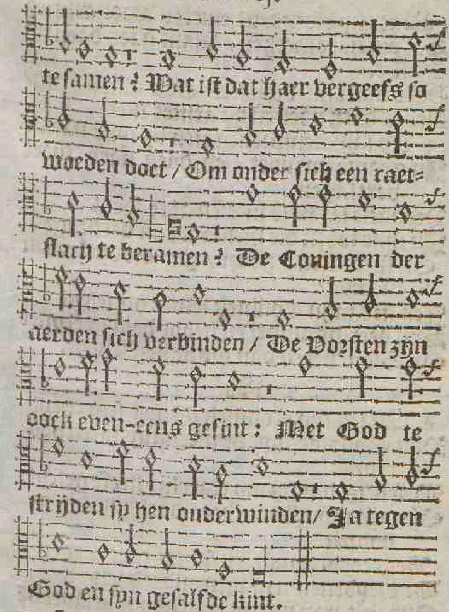 te samen? Wat ist dat haer vergeefs so
woeden doet / Om onder sich een raet=
slach te beramen? De Coningen der
aerden sich verbinden / De Vorsten zijn
oock even-eens gesint: Met God te
strijden sy hen onderwinden / Ja tegen
God en syn gesalfde kint.